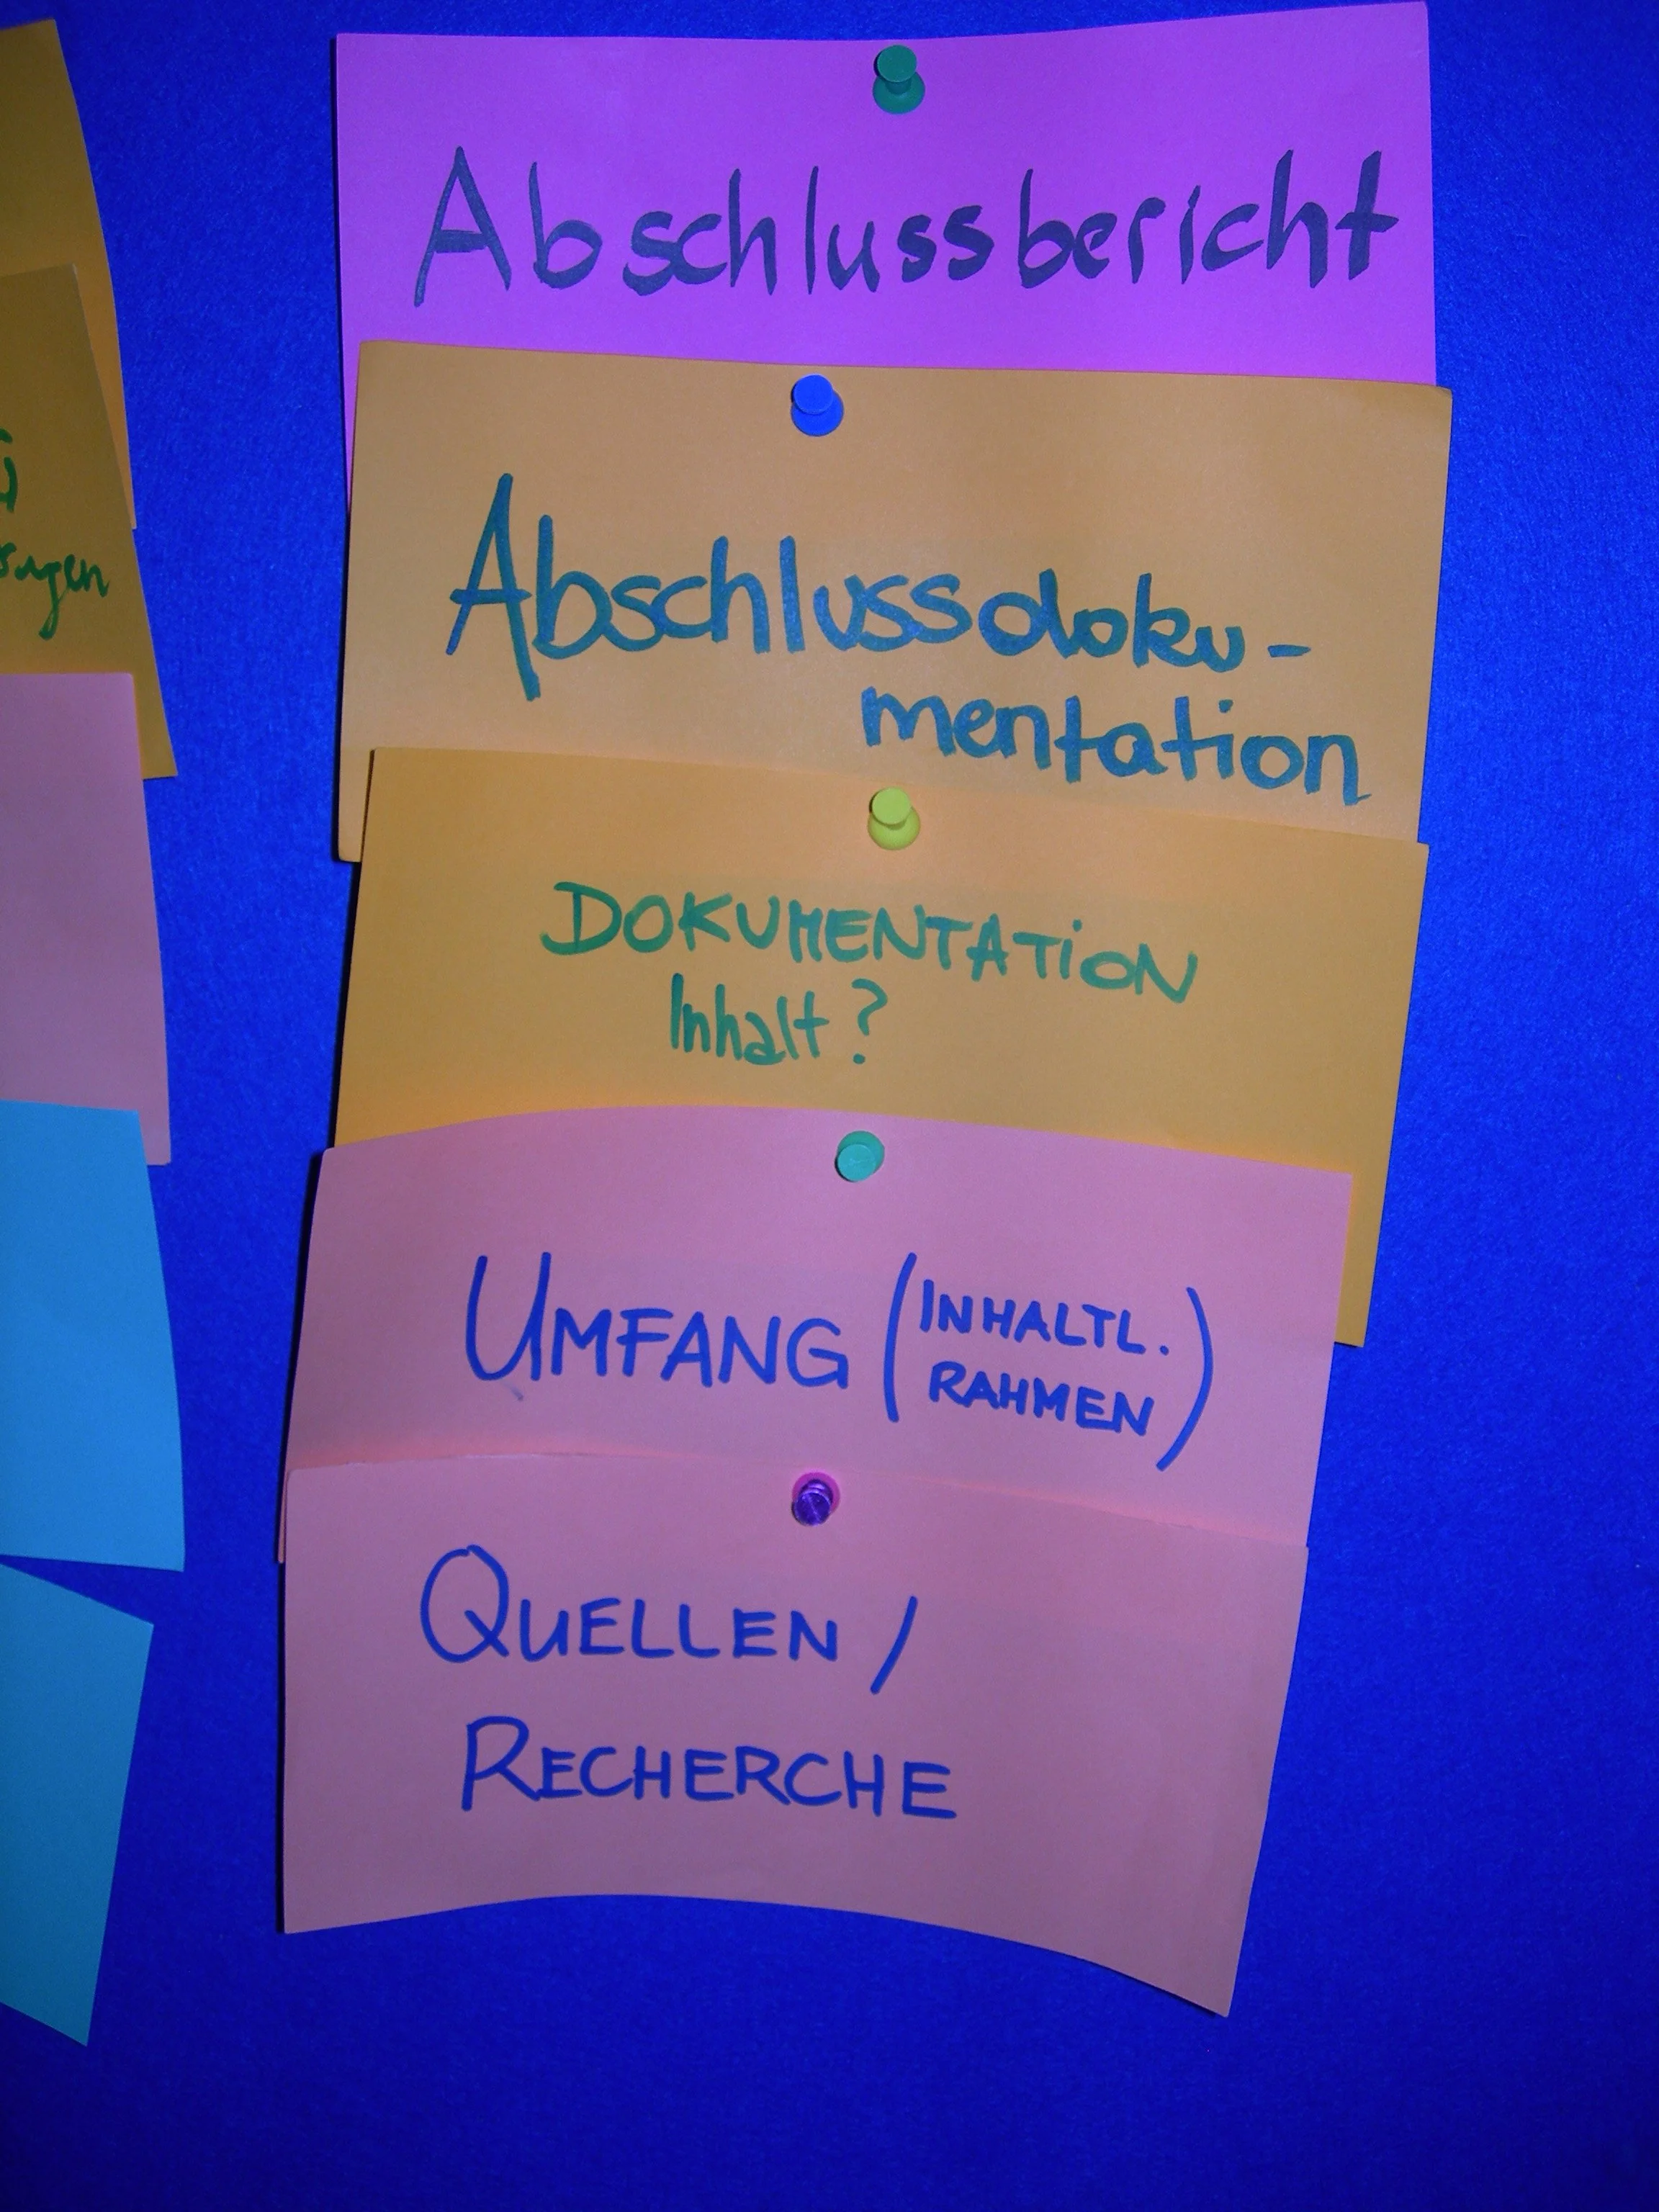 Abschlussbericht
Abschlussdoku-
mentation
DOKUMENTATiON
Inhalt?
UMFANG (INHALTL.
RAHMEN)
QUELLEN /
RECHERCHE